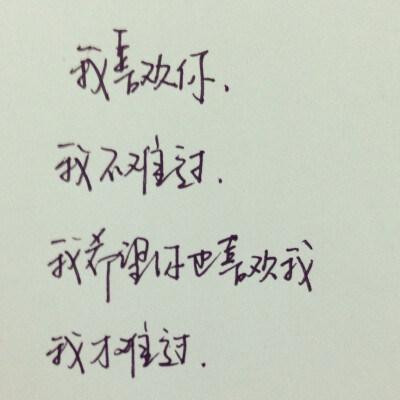 我喜欢你.
我不难过.
我希望你也喜欢我
我才难过.